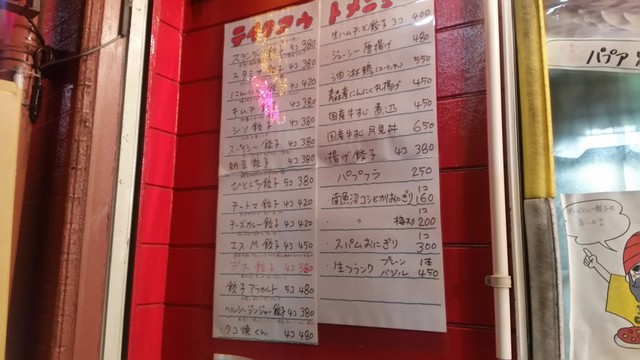 テイクアウトメニュー
スタンダード餃子 4コ 380
スタミナ餃子 4コ 380
にんにく 4コ 420
キムチ 4コ 380
シソ餃子 4コ 380
スパイシー餃子 4コ 380
納豆餃子 4コ 380
ひとくち餃子 5コ 380
チートマ餃子 4コ 420
チーズカレー餃子 4コ 420
エス.M餃子 4コ 450
デス餃子 4コ 380
餃子アラカルト 5コ 480
ヘルシージンジャー餃子 4コ 380
タコ焼くん 4コ 480
生ハムチーズ餃子 3コ 400
ジューシー唐揚げ 480
油淋鶏(ユーリンチー) 550
青森産にんにく丸揚げ 450
国産牛すじ煮込 450
国産牛すじ月見丼 650
揚げ餃子 4コ 380
パプフラ 250
・南魚沼コシヒカリおにぎり 1コ 160
・ 〃 梅入り 1コ 200
・スパムおにぎり 1コ 300
・生フランク プレーン バジル 1本 450
パプア